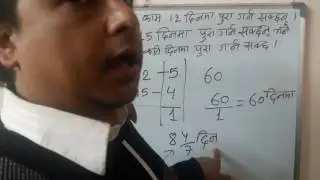 काम 12 दिनमा पुरा गर्न सक्छन् ।
5 दिनमा पुरा गर्न सक्छन् भने
दिनमा पुरा गर्न सक्छ ।
2 - 5
60
5 - 4
1
60/1 = 60 दिनमा
8 4/7 दिन